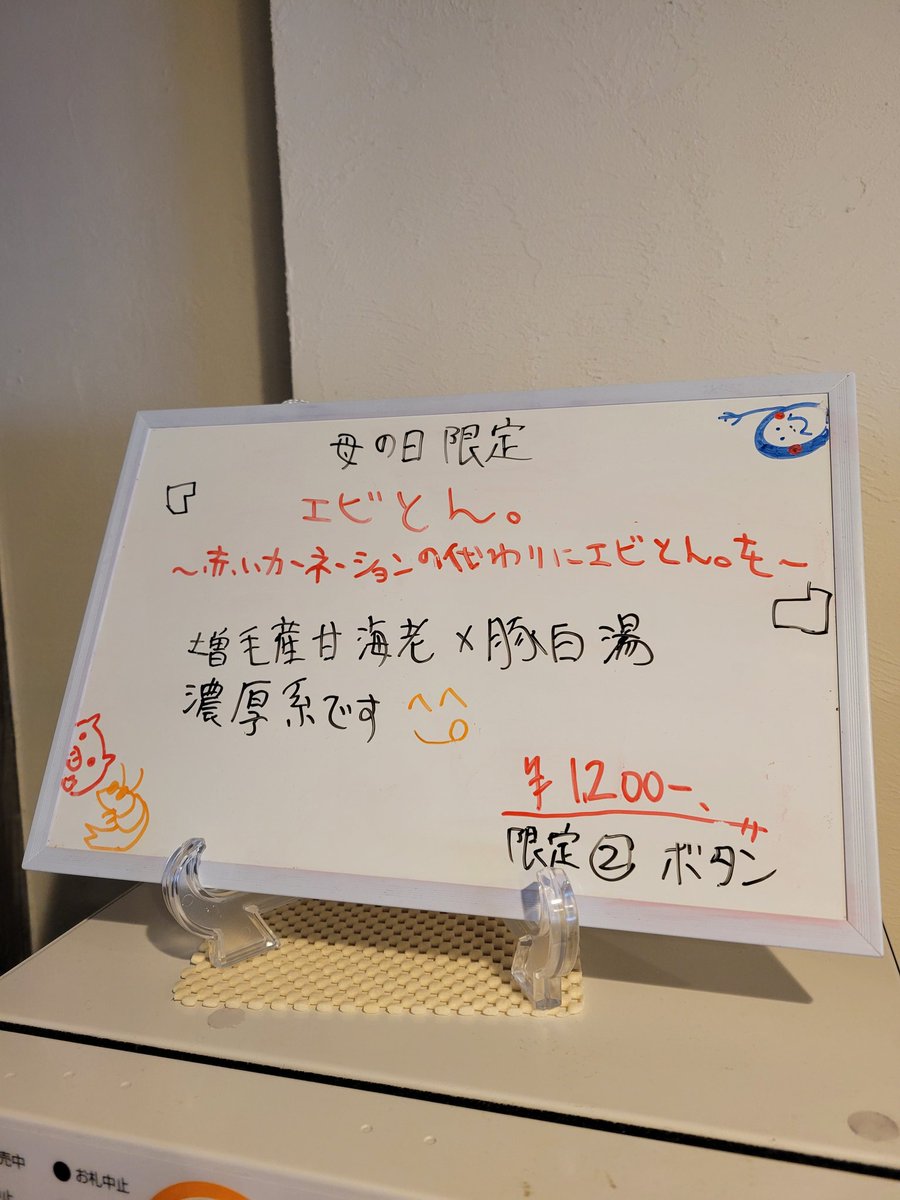 母の日限定
エビとん。
～赤いカーネーションの代わりにエビとん。を～
増毛産甘海老×豚白湯
濃厚系です
¥1,200-
限定② ボタン
売中
お札中止
止